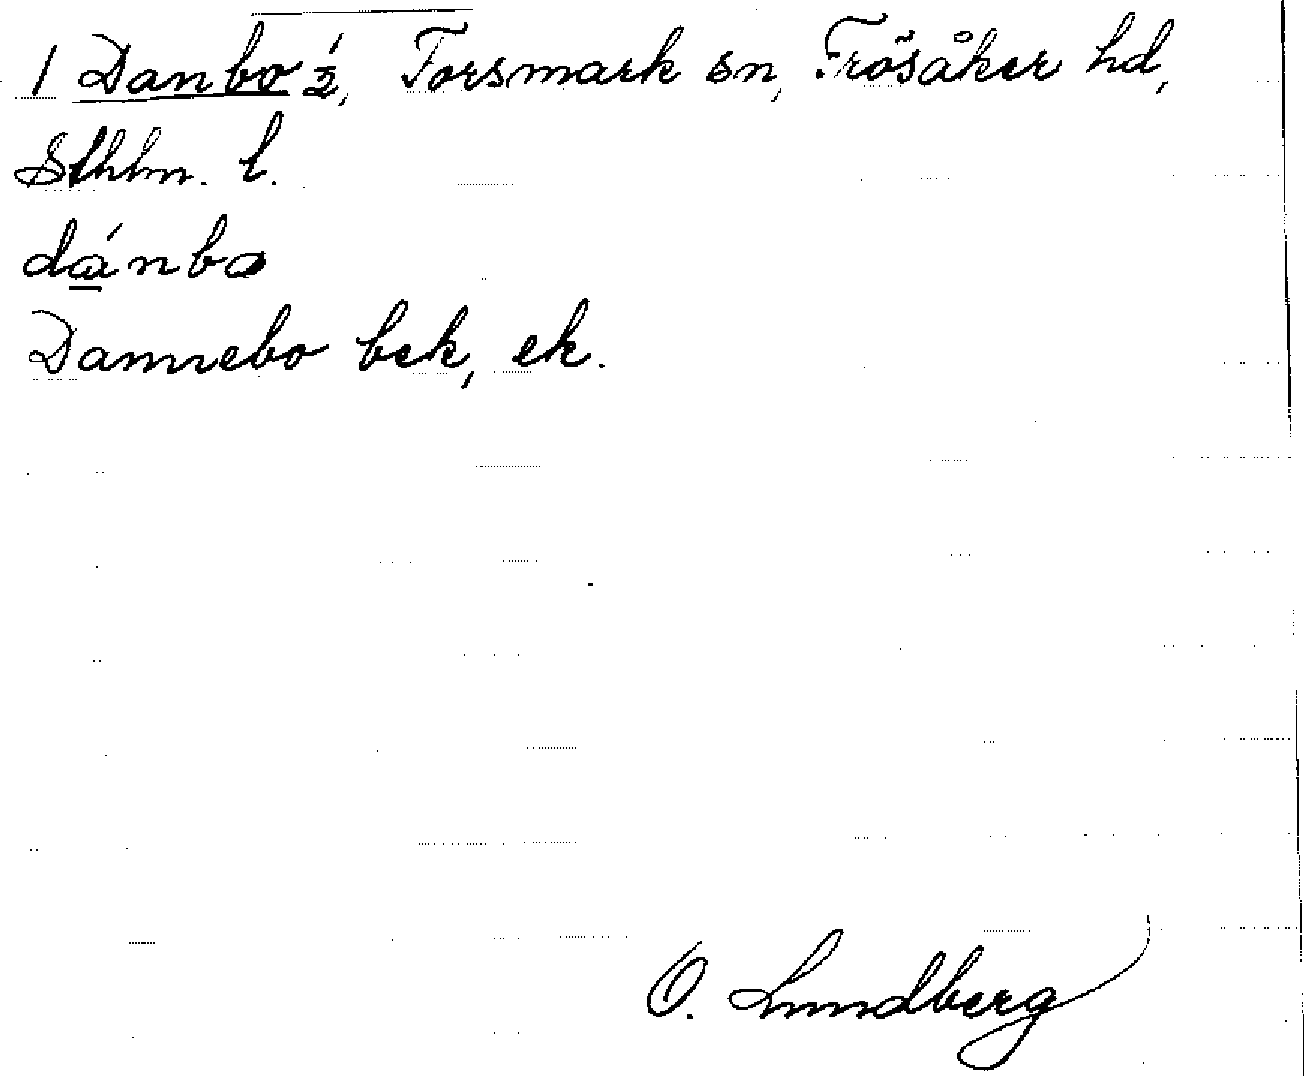 1 Danbo ½, Forsmark sn, Frösåker hd,
Sthlm. l.
dánbo
Dannebo bek, ek.
O. Lundberg